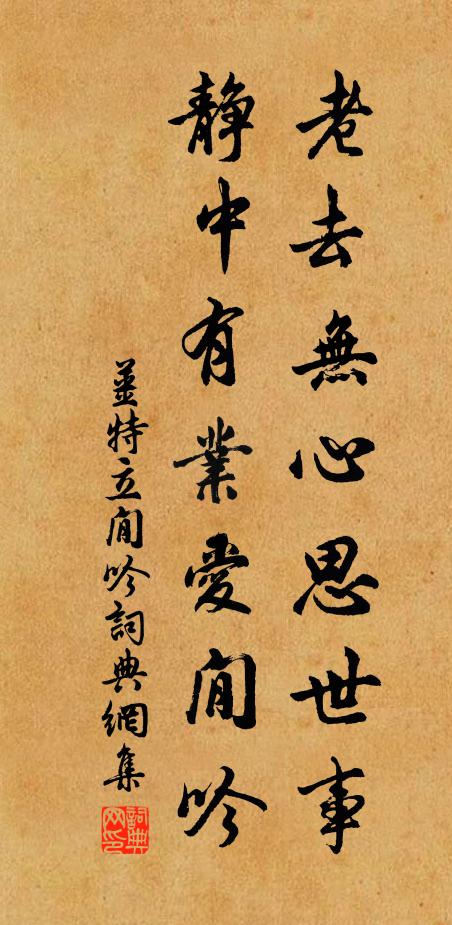 老去無心思世事
靜中有業愛閒吟
薑特立閒吟詞典網集
詞典网印